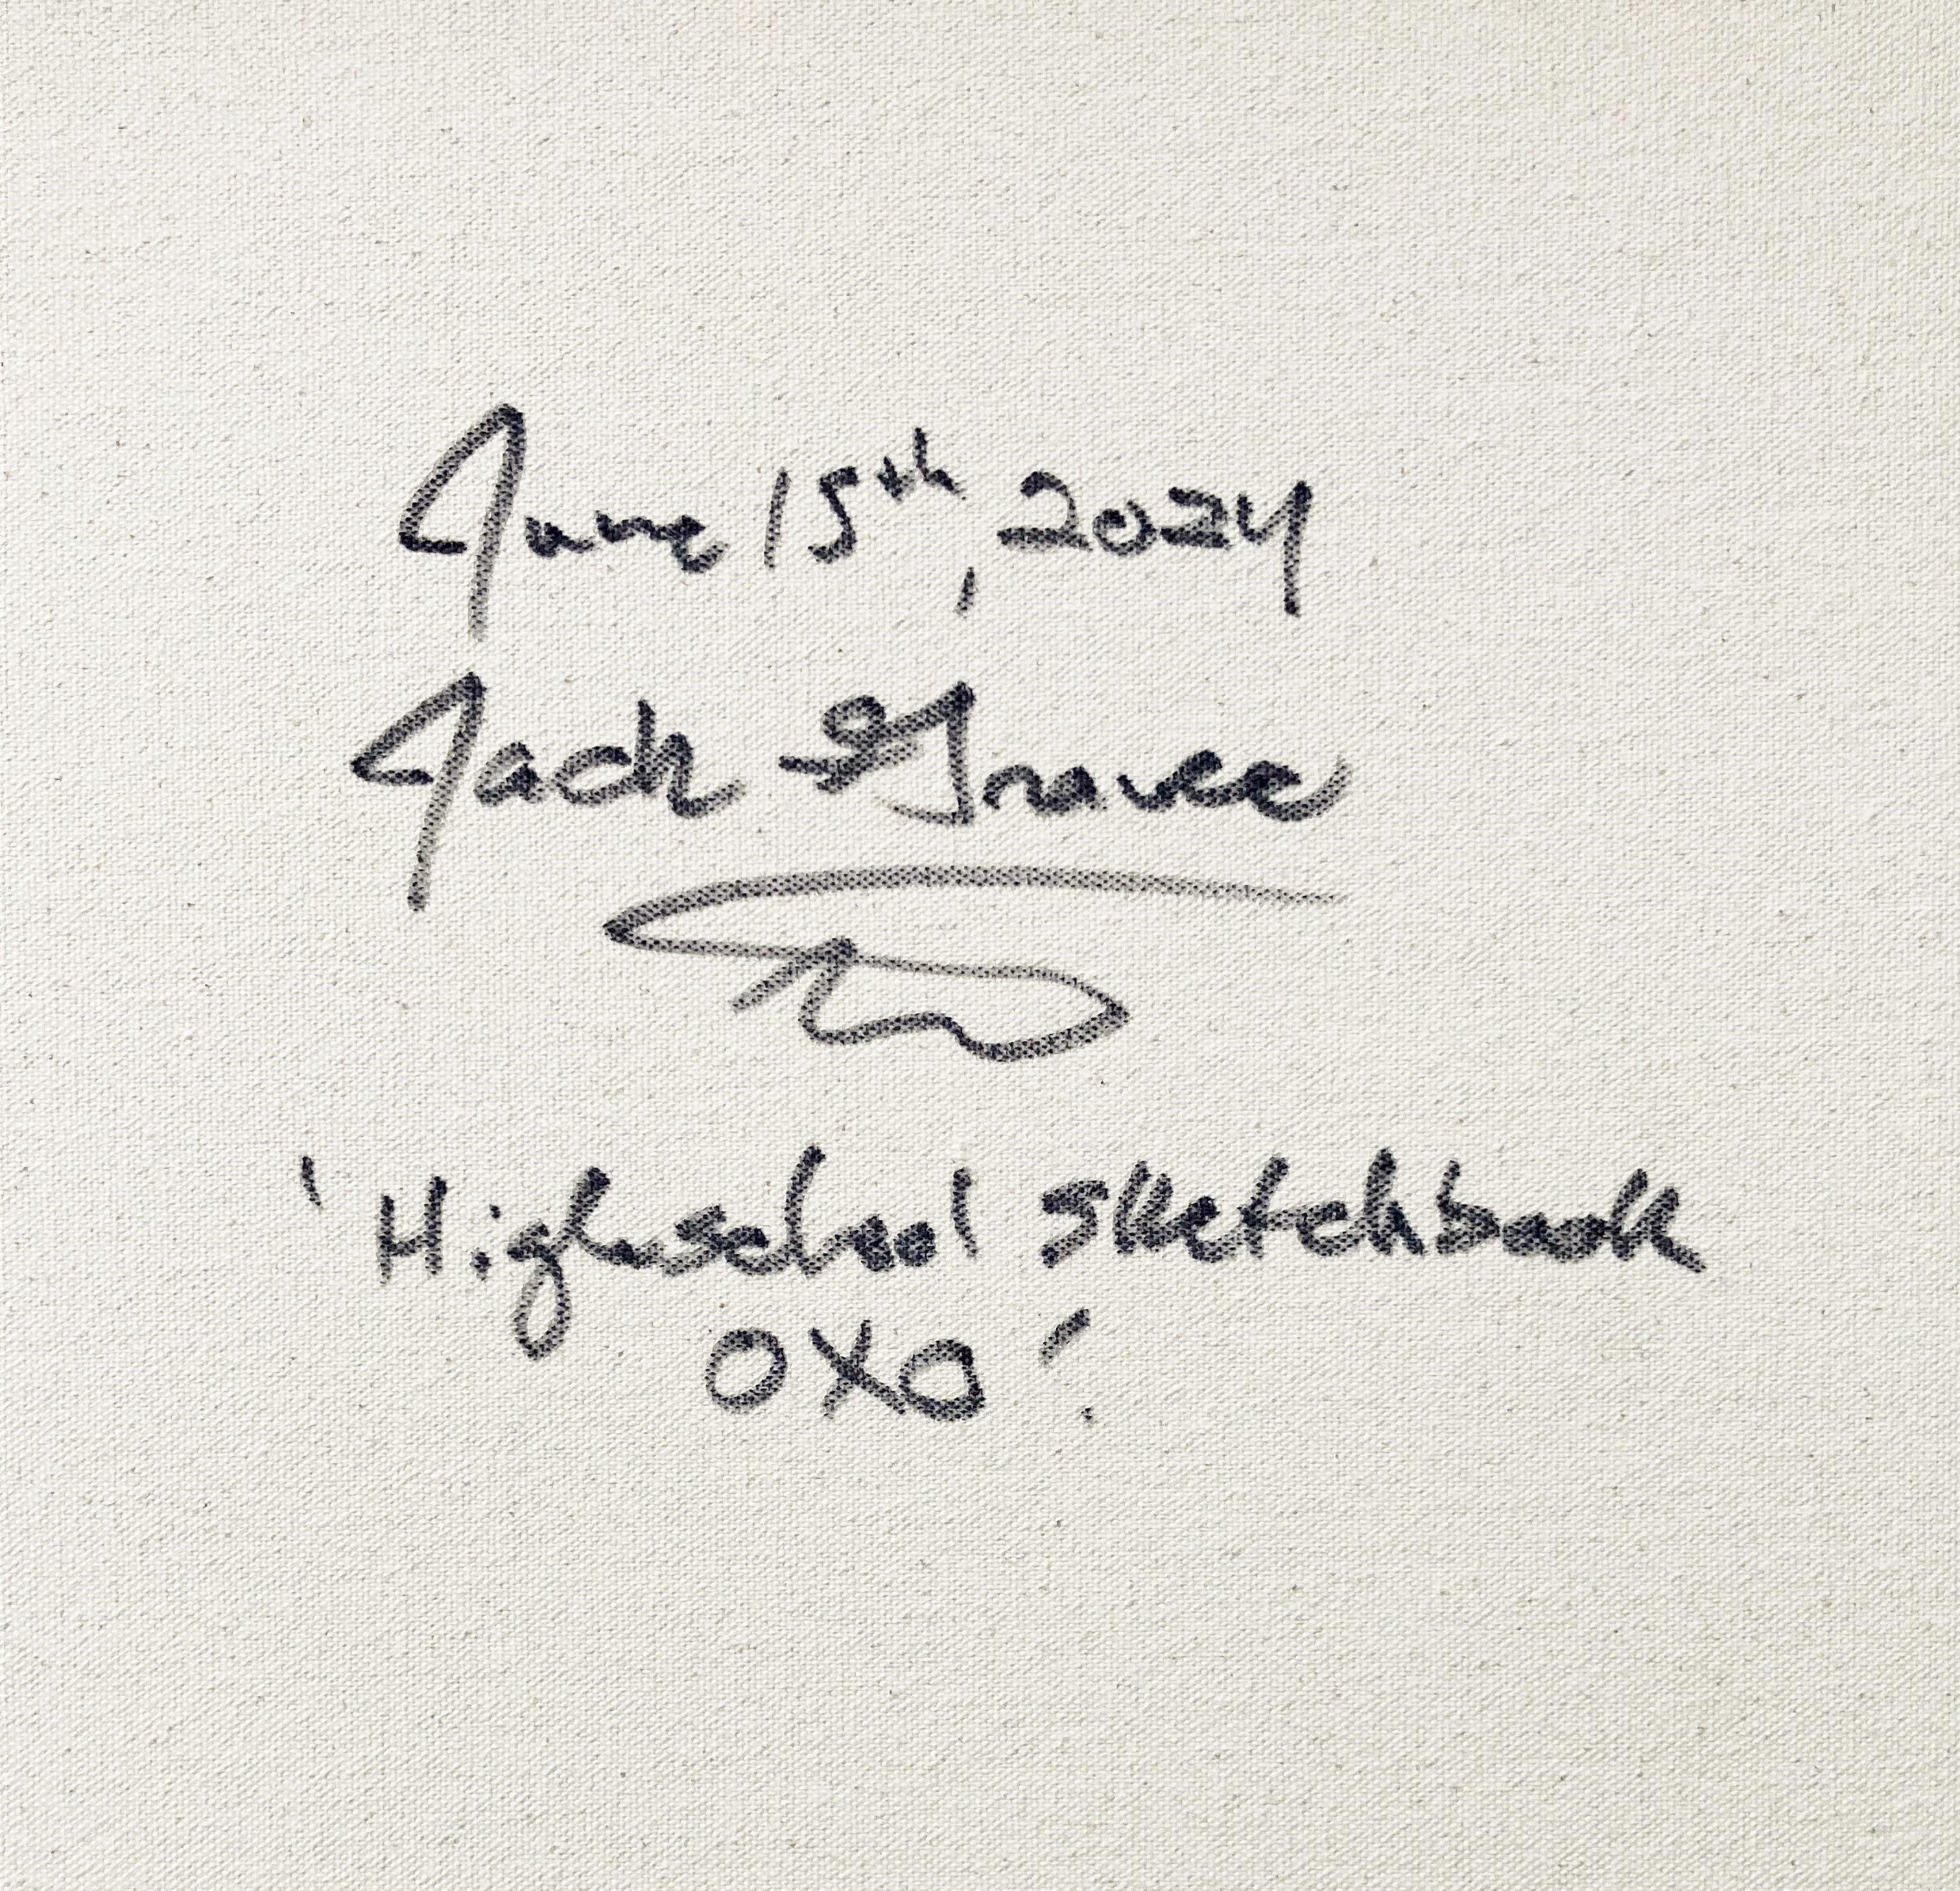 June 15th, 2024
Jack Graves
'Highschool Sketchbook
OXO'.